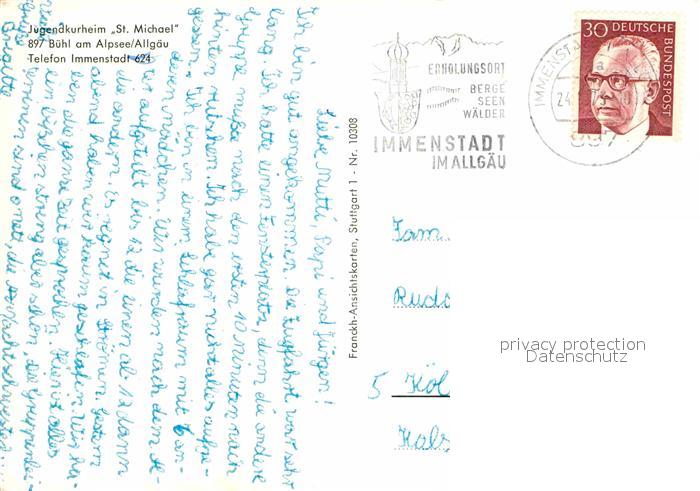 Jugendkurheim „St. Michael"
897 Bühl am Alpsee/Allgäu
Telefon Immenstadt 624
Liebe Mutti, Papi und Jürgen!
Ich bin gut angekommen. Die Zugfahrt war sehr
lang. Ich hatte einen Fensterplatz, denn die andere
Gruppe musste nach den ersten 10 Minuten nach
hinten rutschen. Ich habe gar nicht alles aufge-
gessen. Ich bin in einem Schlafraum mit 6 an-
deren Mädchen. Wir wurden nach dem
aufgeteilt bis 12 die einen ab 12 dann
die andern. Es regnet in Strömen gestern
abend haben wir kaum geschlafen. Wir ha-
ben die ganze Zeit gesprochen. Hier ist alles
ein bißchen streng aber schön. Die Gruppenlei-
sind nett, die Nachtschwester
Brigitte
Franckh-Ansichtskarten, Stuttgart 1 - Nr. 10308
ERHOLUNGSORT
BERGE
SEEN
WÄLDER
IMMENSTADT
IM ALLGÄU
IMMENSTADT
24.
897
30 DEUTSCHE
BUNDESPOST
Fam.
Rudo
5 Köl
Hals
privacy protection
Datenschutz